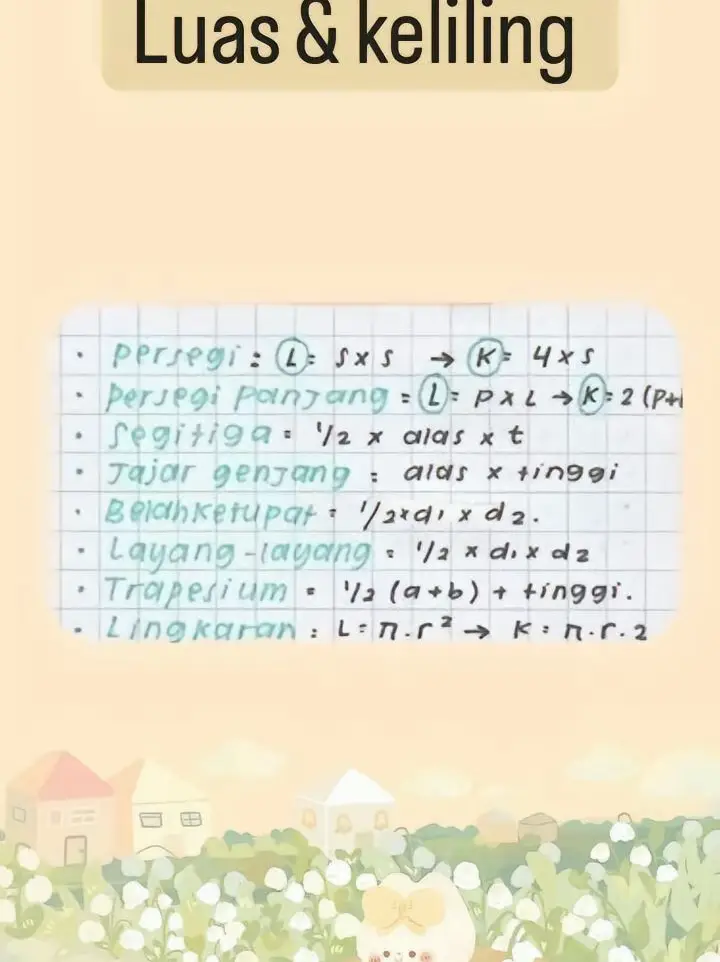 Luas & keliling
• Persegi : L = s x s → K = 4 x s
• Persegi Panjang = L = P x L → K = 2 (P+l
• Segitiga = 1/2 x alas x t
• Jajar genjang : alas x tinggi
• Belahketupat = 1/2 x d1 x d2.
• Layang-layang = 1/2 x d1 x d2
• Trapesium = 1/2 (a+b) + tinggi.
• Lingkaran : L = π.r² → K = π.r.2